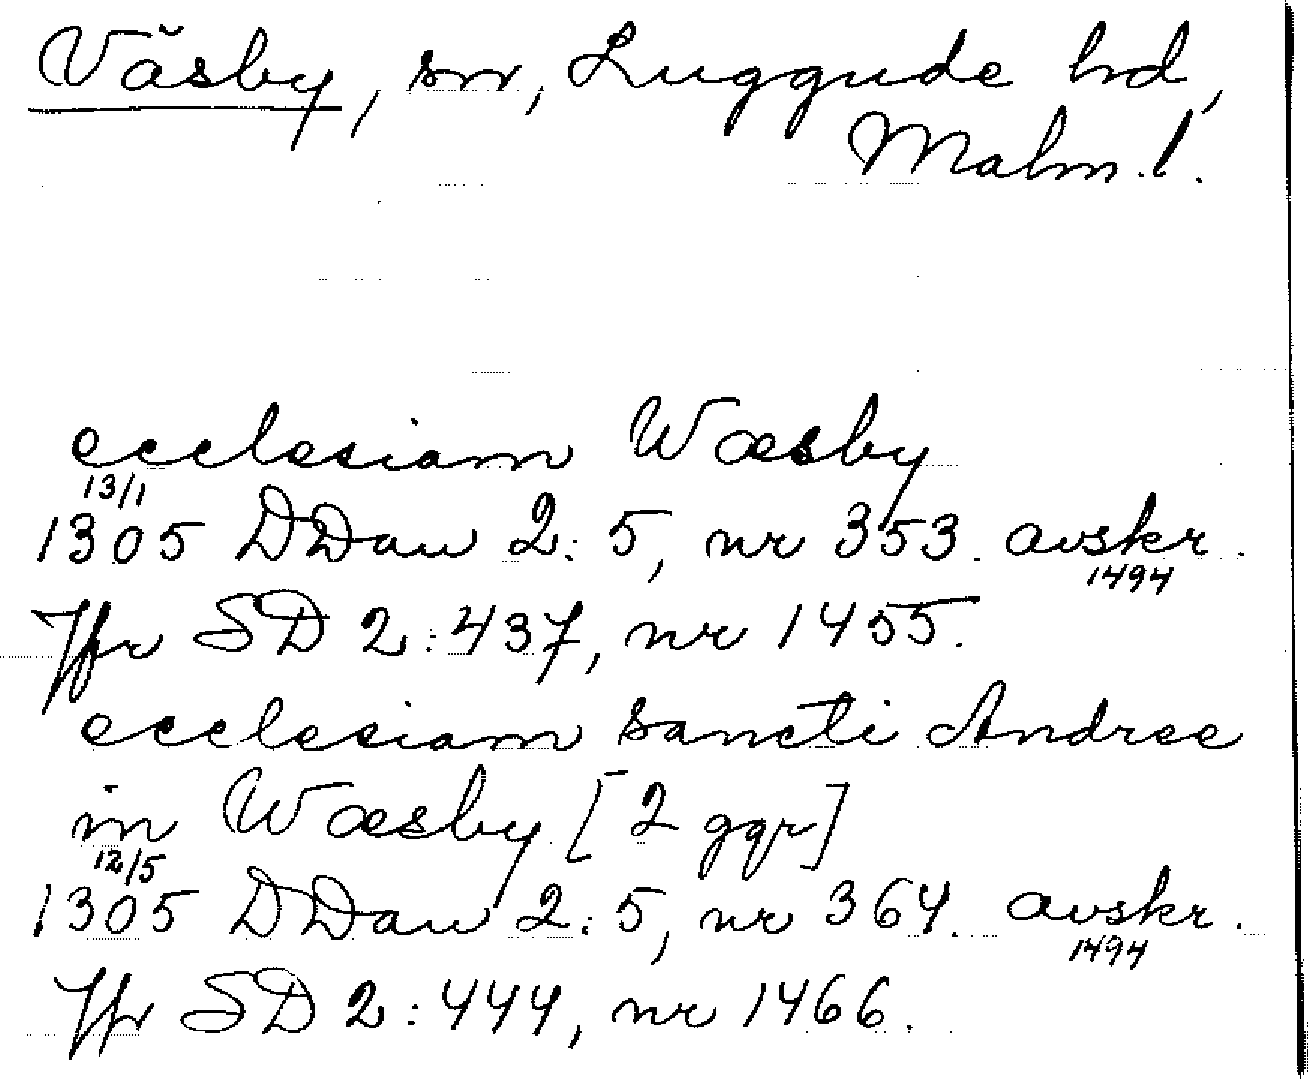 Väsby, sn, Luggude hd,
Malm. l.
ecclesiam Wæsby
13/1
1305 DDan 2:5, nr 353. avskr.
1494
Jfr SD 2:437, nr 1455.
ecclesiam sancti Andree
in Wæsby [2 ggr]
12/5
1305 DDan 2:5, nr 364. avskr.
1494
Jfr SD 2:444, nr 1466.